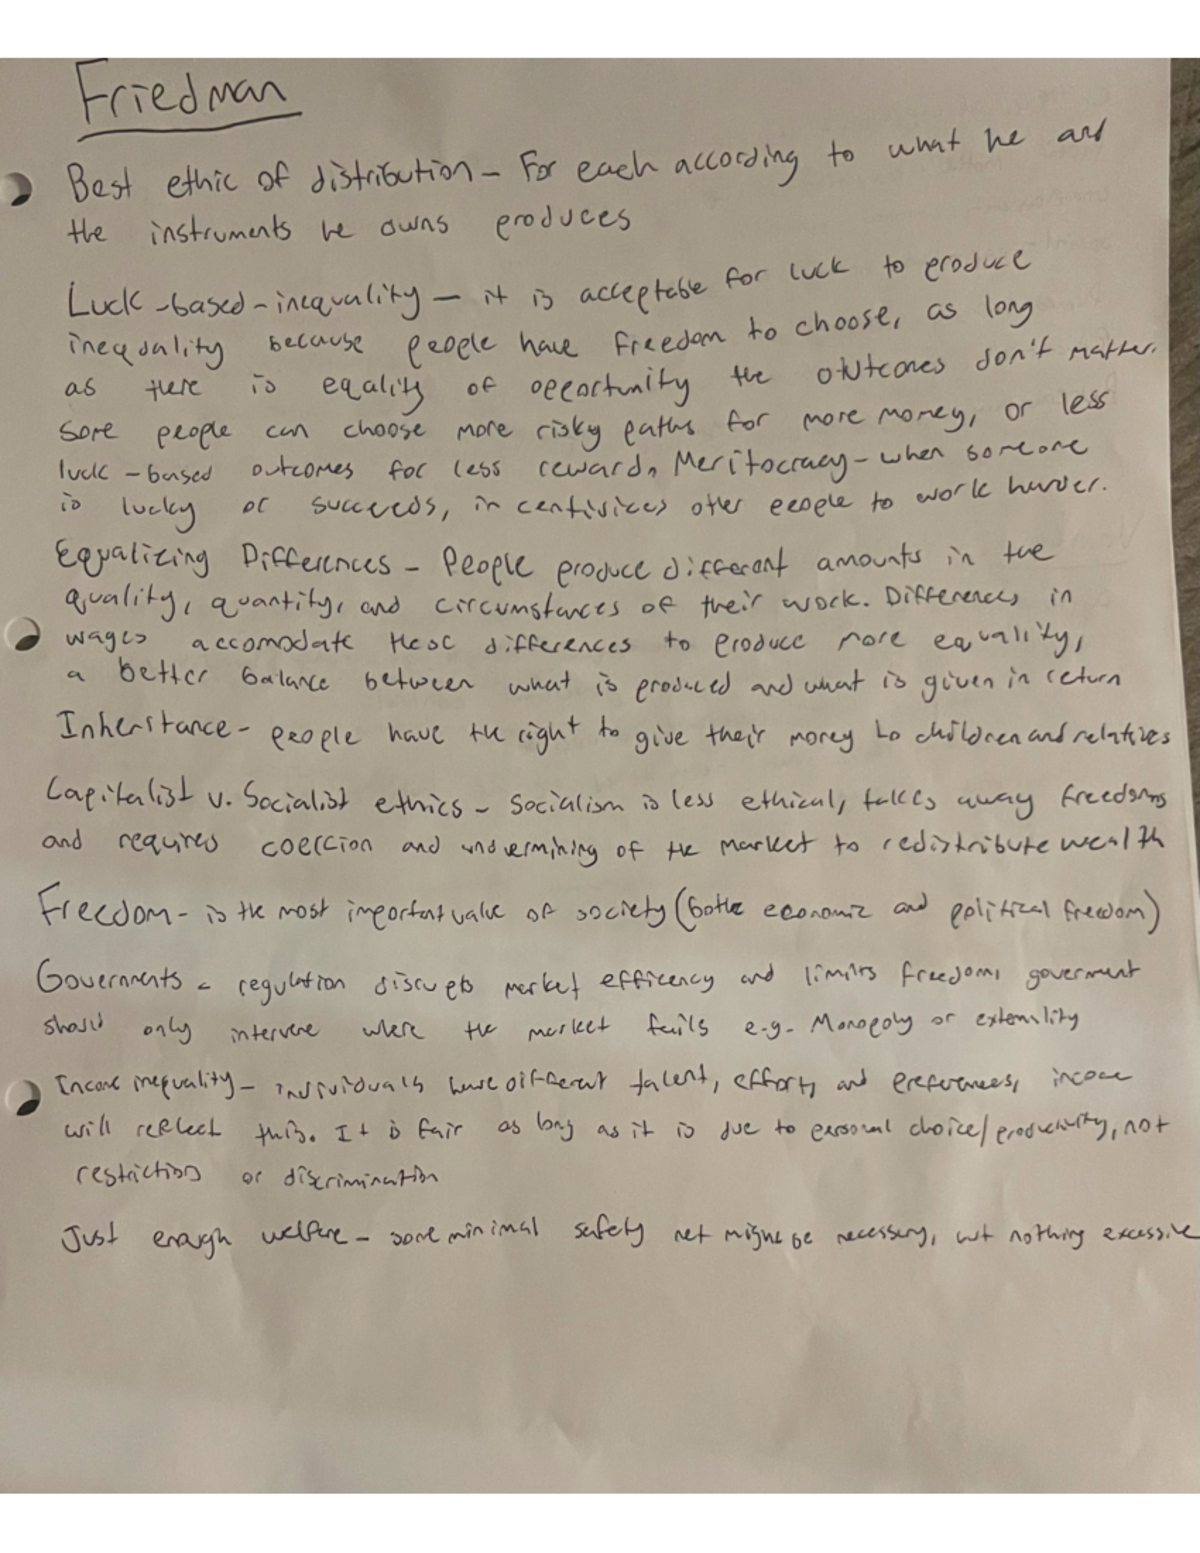 Friedman
Best ethic of distribution - For each according to what he and
the instruments he owns produces
Luck-based-inequality - it is acceptable for luck to produce
inequality because people have freedom to choose, as long
as there is equality of opportunity the outcomes don't matter.
Some people can choose more risky paths for more money, or less
luck-based outcomes for less reward. Meritocracy - when someone
is lucky or succeeds, incentivizes other people to work harder.
Equalizing Differences - People produce different amounts in the
quality, quantity, and circumstances of their work. Differences in
wages accomodate these differences to produce more equality,
a better balance between what is produced and what is given in return
Inheritance - people have the right to give their money to children and relatives
Capitalist v. Socialist ethics - Socialism is less ethical, takes away freedoms
and requires coercion and undermining of the market to redistribute wealth
Freedom - is the most important value of society (both economic and political freedom)
Governments - regulation disrupts market efficency and limits freedom, goverment
should only intervene where the market fails e.g. Monopoly or externility
Income inequality - individuals have different talent, effort, and preferences, income
will reflect this. It is fair as long as it is due to personal choice/productivity, not
restrictions or discrimination
Just enough welfare - some minimal safety net might be necessary, but nothing excessive